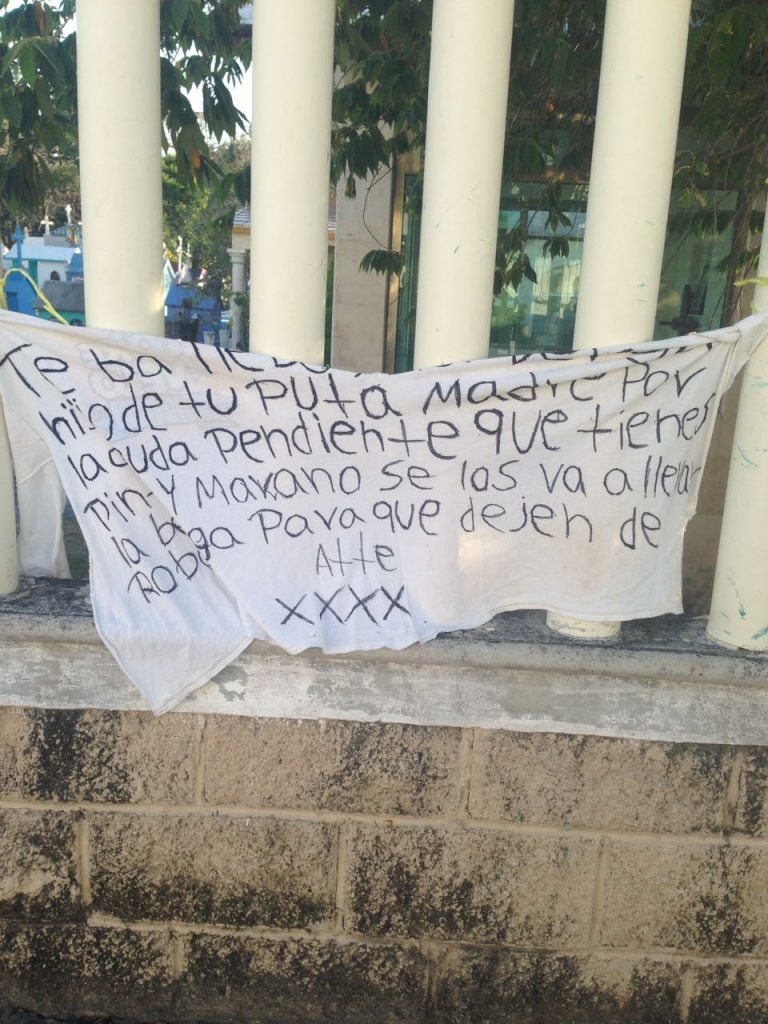 Te ba
hijo de tu PUTA Madre Por
la cuda Pendiente que tienes
Pin-y Marano se los va allevar
la bega Para que dejen de
Roba
Atte
XXXX